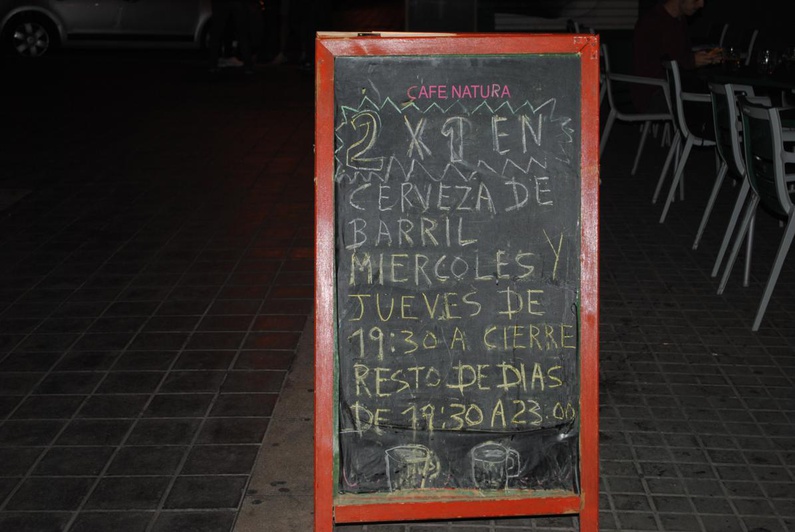 CAFE NATURA
2 X 1 EN
CERVEZA DE
BARRIL
MIERCOLES Y
JUEVES DE
19:30 A CIERRE
RESTO DE DIAS
DE 19:30 A 23:00